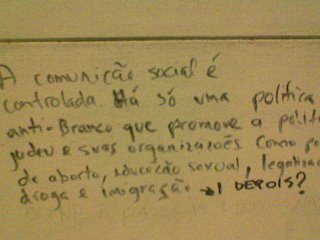 A comunicação social é
controlada. Há só uma política
anti-Branco que promove a
judeu e suas organizações. Como
de aborto, educação sexual,
droga e imigração → I DEPOIS?